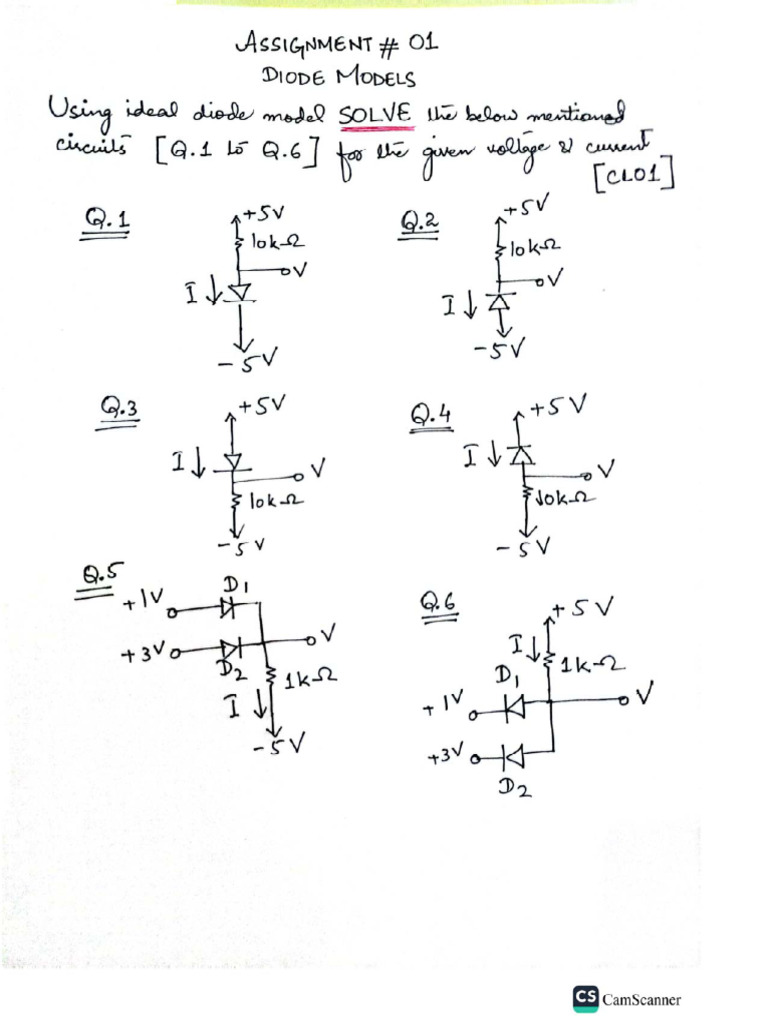 ASSIGNMENT # 01
DIODE MODELS
Using ideal diode model SOLVE the below mentioned
circuits [Q.1 to Q.6] for the given voltage & current
[CLO1]
Q.1
+5V
10kΩ
V
I
-5V
Q.2
+5V
10kΩ
V
I
-5V
Q.3
+5V
I
V
10kΩ
-5V
Q.4
+5V
I
V
10kΩ
-5V
Q.5
+1V
D1
+3V
D2
V
1kΩ
I
-5V
Q.6
+5V
I
1kΩ
D1
+1V
V
+3V
D2
CS CamScanner